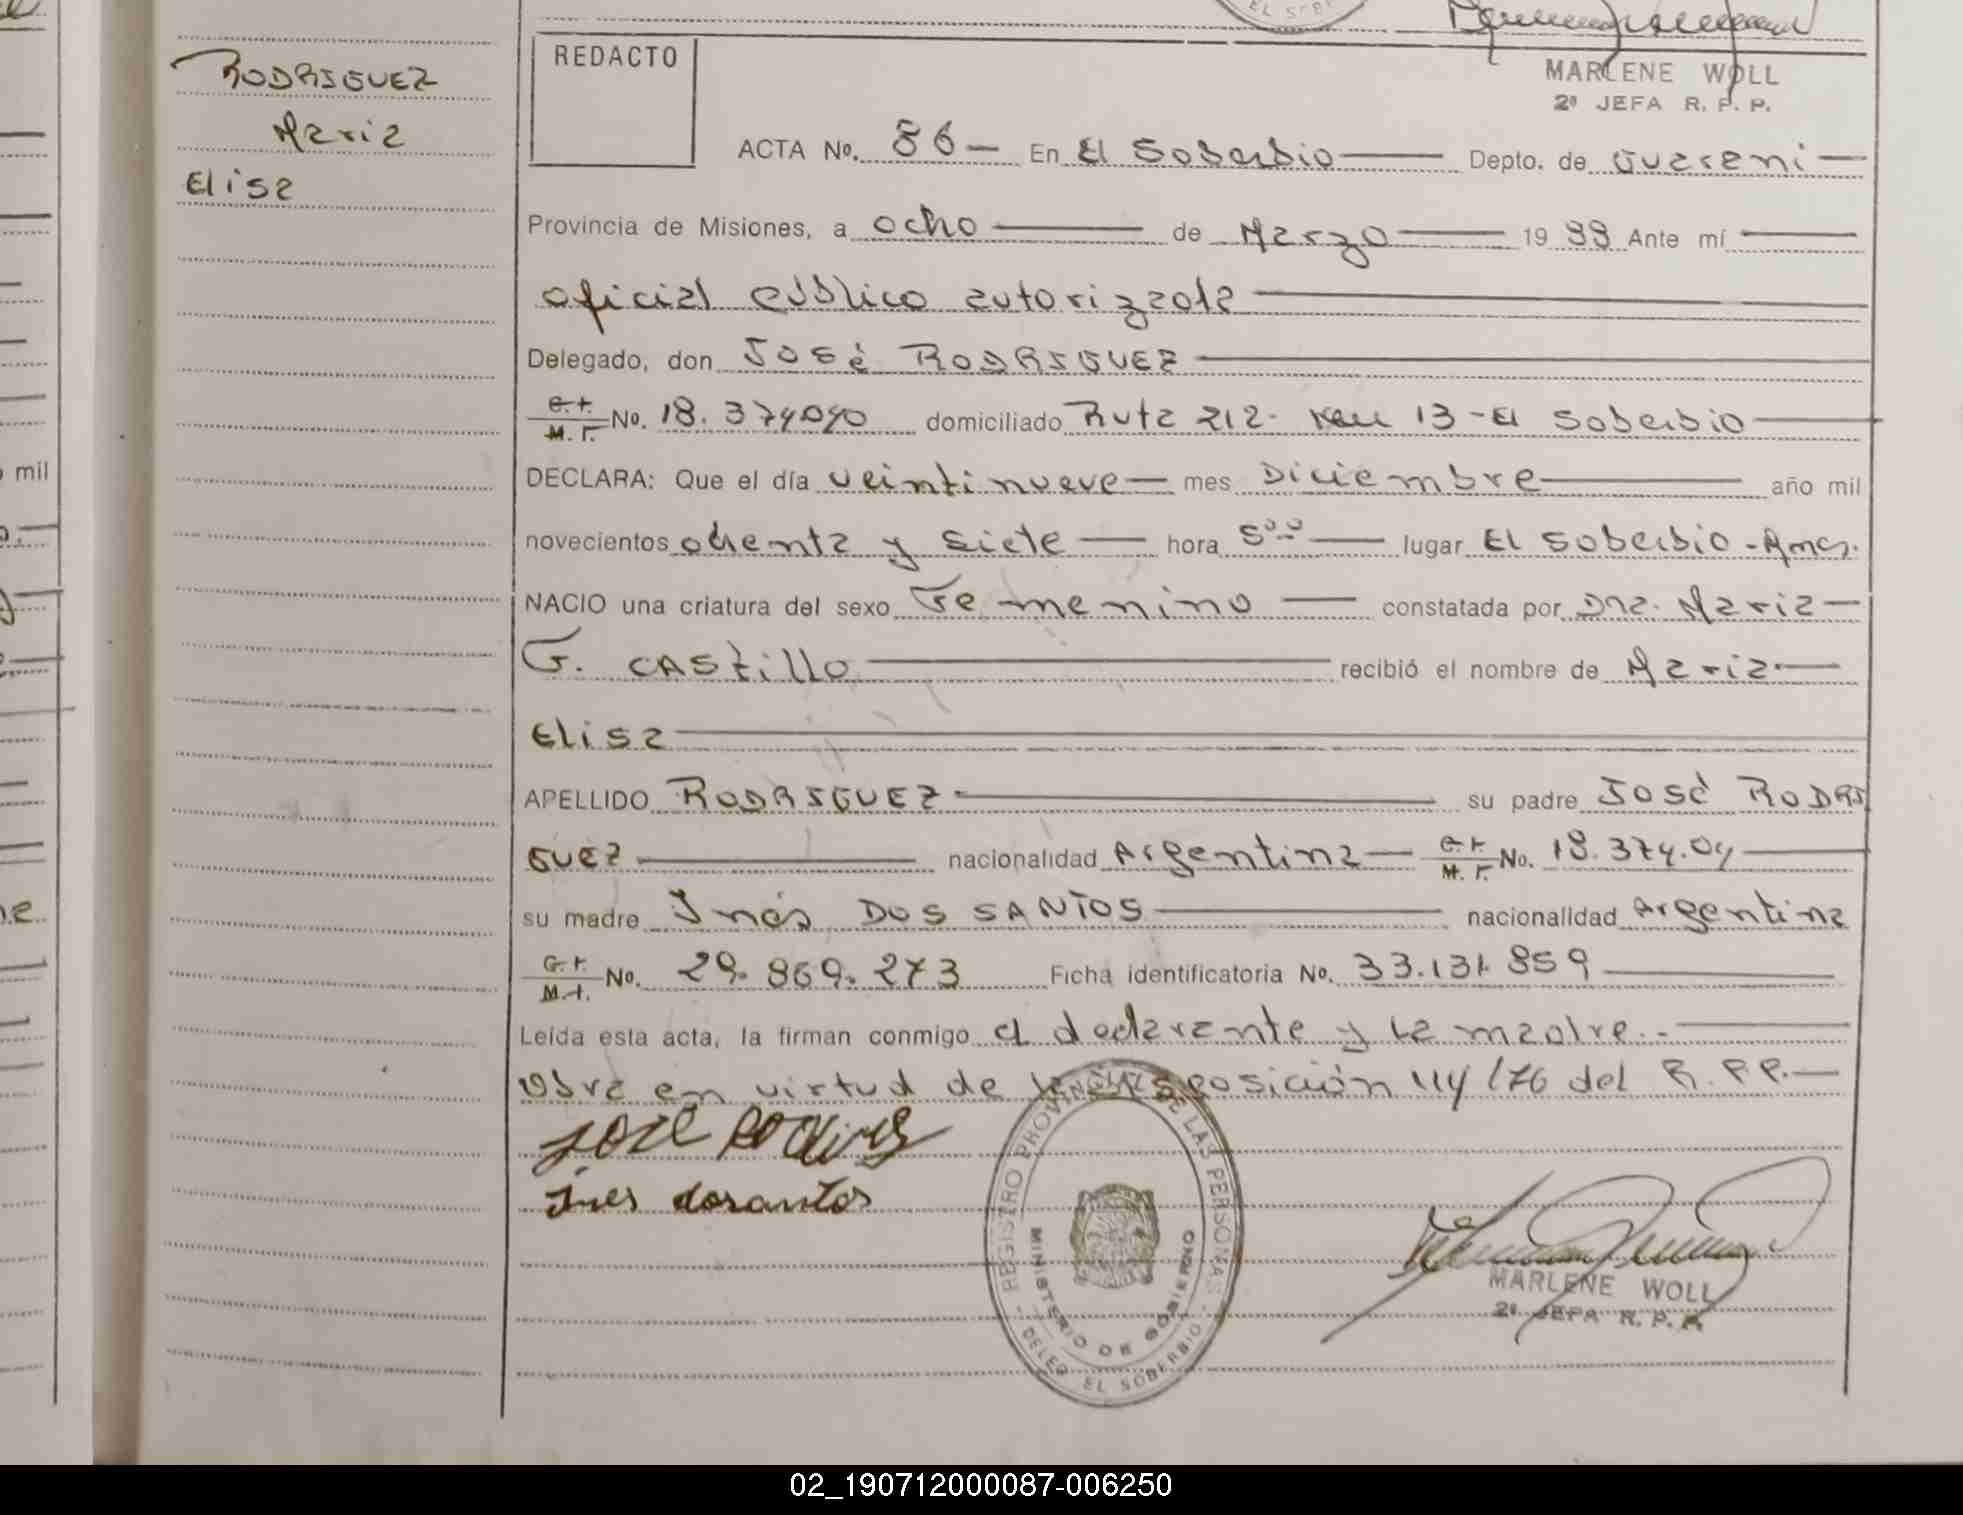 EL SOBE
MARLENE WOLL
2º JEFA R. P. P.
RODRIGUEZ
Maria
Elisa
REDACTO
ACTA No. 86 — En El Soberbio — Depto. de Guarani —
Provincia de Misiones, a ocho — de Marzo — 19 88 Ante mí —
oficial público autorizada —
Delegado, don José RODRIGUEZ —
C.I. M.I. No. 18.374040 domiciliado Ruta 212- Km 13 - El Soberbio —
DECLARA: Que el día veintinueve — mes Diciembre — año mil
novecientos ochenta y siete — hora 5°° — lugar El Soberbio - Mnes.
NACIO una criatura del sexo Femenino — constatada por Dra. Maria —
G. CAStillo — recibió el nombre de Maria —
Elisa —
APELLIDO RODRIGUEZ — su padre José RODRI
GUEZ — nacionalidad Argentina — C.I. M.I. No. 18.374.04 —
su madre Inés DOS SANTOS — nacionalidad Argentina
C.I. M.I. No. 29.869.273 Ficha identificatoria No. 33.131.859 —
Leída esta acta, la firman conmigo el declarante y la madre.- —
Obra en virtud de la Disposición 114/76 del R.P.P. —
JOSE
Ines dosantos
REGISTRO PROVINCIAL DE LAS PERSONAS
MINISTERIO DE GOBIERNO
DELEG. EL SOBERBIO
MARLENE WOLL
2º JEFA R. P. P.
02_190712000087-006250